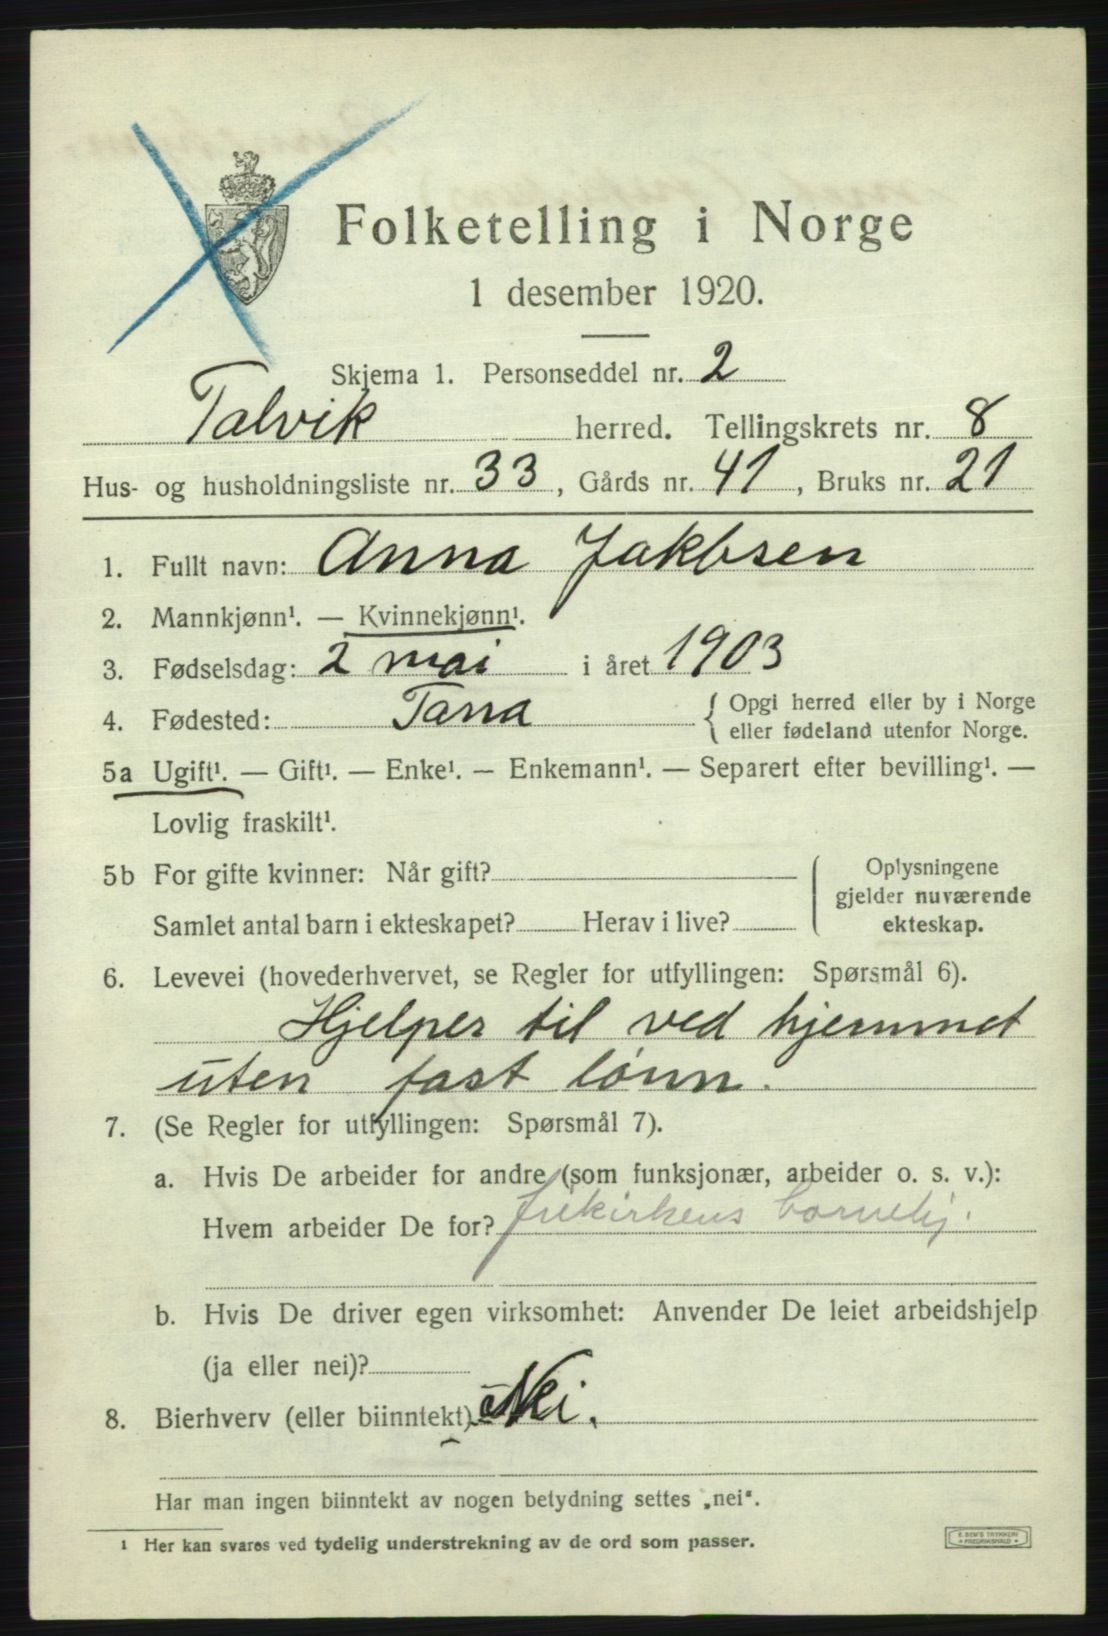 Folketelling i Norge
1 desember 1920.
Skjema 1. Personseddel nr. 2
Talvik herred. Tellingskrets nr. 8
Hus- og husholdningsliste nr. 33, Gårds nr. 41, Bruks nr. 21
1. Fullt navn: Anna Jakbsen
2. Mannkjønn¹. — Kvinnekjønn¹.
3. Fødselsdag: 2 mai i året 1903
4. Fødested: Tana { Opgi herred eller by i Norge
eller fødeland utenfor Norge.
5a Ugift¹. — Gift¹. — Enke¹. — Enkemann¹. — Separert efter bevilling¹. —
Lovlig fraskilt¹.
5b For gifte kvinner: Når gift?
Samlet antal barn i ekteskapet? Herav i live?
Oplysningene
gjelder nuværende
ekteskap.
6. Levevei (hovederhvervet, se Regler for utfyllingen: Spørsmål 6).
Hjelper til ved hjemmet
uten fast lønn.
7. (Se Regler for utfyllingen: Spørsmål 7).
a. Hvis De arbeider for andre (som funksjonær, arbeider o. s. v.):
Hvem arbeider De for? Frikirkens barnehj.
b. Hvis De driver egen virksomhet: Anvender De leiet arbeidshjelp
(ja eller nei)?
8. Bierhverv (eller biinntekt) Nei.
Har man ingen biinntekt av nogen betydning settes „nei".
¹ Her kan svares ved tydelig understrekning av de ord som passer.
E. SEM'S TRYKKERI
FREDRIKSHALD